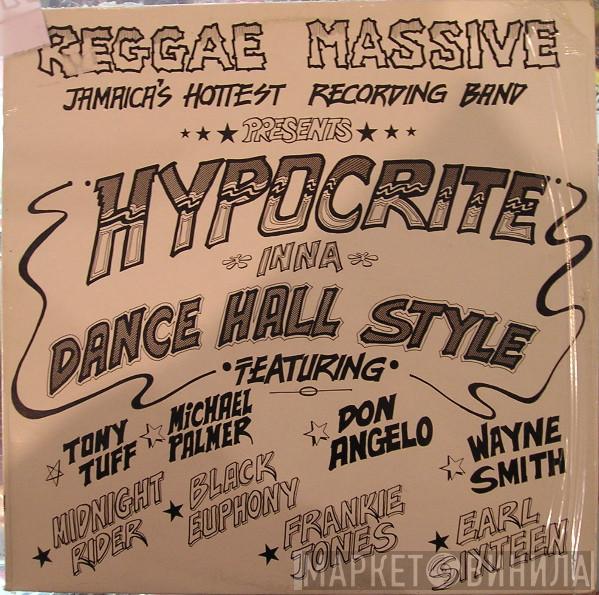 REGGAE MASSIVE
JAMAICA'S HOTTEST RECORDING BAND
PRESENTS
HYPOCRITE
INNA
DANCE HALL STYLE
FEATURING
TONY TUFF
MICHAEL PALMER
DON ANGELO
WAYNE SMITH
MIDNIGHT RIDER
BLACK EUPHONY
FRANKIE JONES
EARL SIXTEEN
МАРКЕТ ВИНИЛА